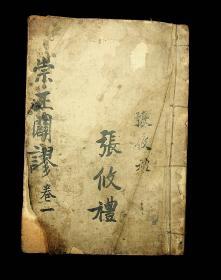 崇正闢謬 卷一
張攸禮
張攸禮